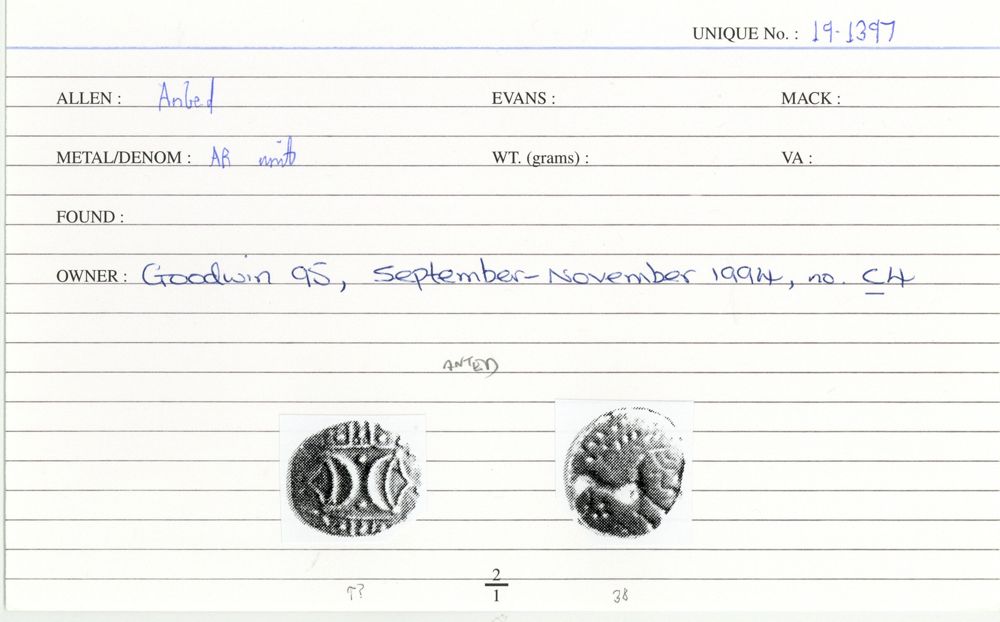 UNIQUE No. : 19-1397
ALLEN : Anted EVANS : MACK :
METAL/DENOM : AR unit WT. (grams) : VA :
FOUND :
OWNER : Goodwin 95, September-November 1994, no. C4
ANTED
2
1
T? 38